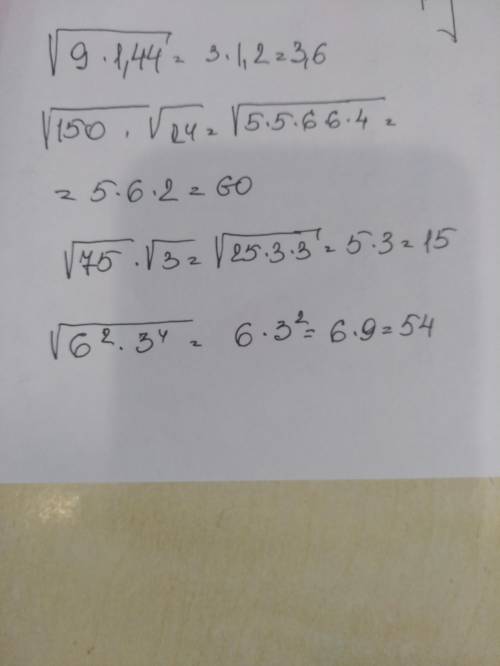 √(9·1,44) = 3·1,2=3,6
√150 · √24 = √(5·5·6 6·4) =
= 5·6·2 = 60
√75 · √3 = √(25·3·3) = 5·3=15
√(6²·3⁴) = 6·3² = 6·9=54